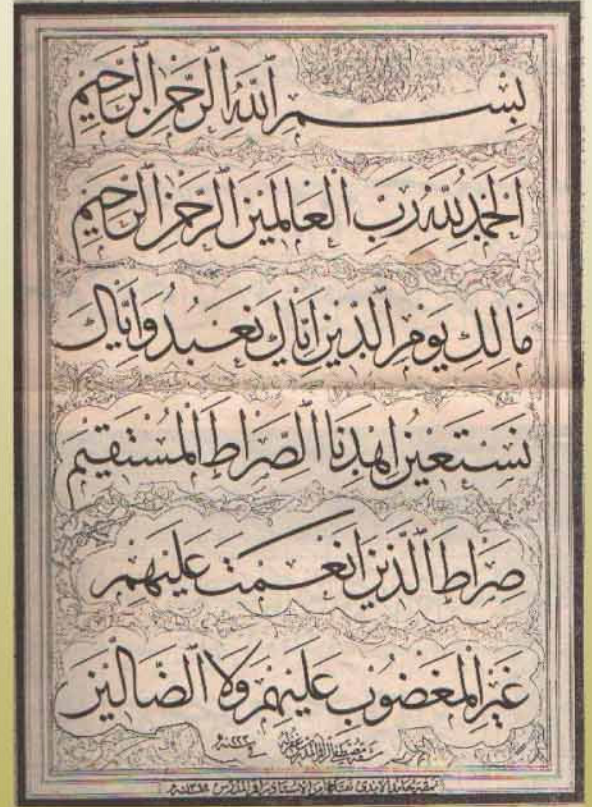 بِسْمِ ٱللَّهِ ٱلرَّحْمٰنِ ٱلرَّحِيْمِ
اَلْحَمْدُ لِلّٰهِ رَبِّ الْعَالَمِيْنَ ٱلرَّحْمٰنِ ٱلرَّحِيْمِ
مَالِكِ يَوْمِ ٱلدِّيْنِ اِيَّاكَ نَعْبُدُ وَاِيَّاكَ
نَسْتَعِيْنُ اِهْدِنَا ٱلصِّرَاطَ الْمُسْتَقِيْمَ
صِرَاطَ ٱلَّذِيْنَ اَنْعَمْتَ عَلَيْهِمْ
غَيْرِ الْمَغْضُوْبِ عَلَيْهِمْ وَلَا ٱلضَّالِّيْنَ